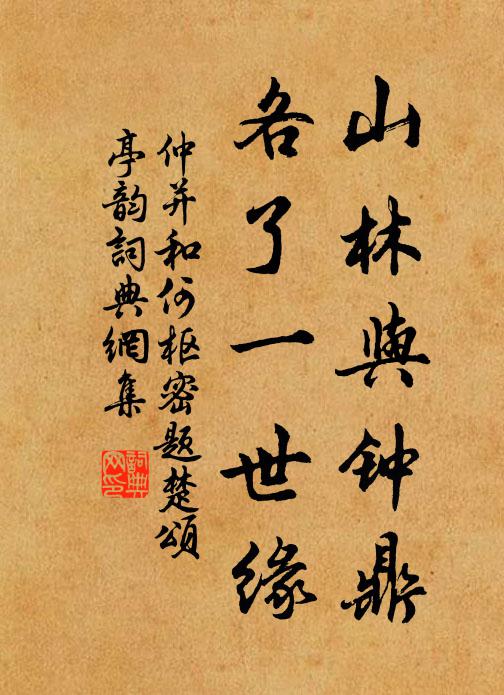 山林與钟鼎
各了一世缘
仲并和何枢密题楚頌
亭韵詞典網集
詞典
网印